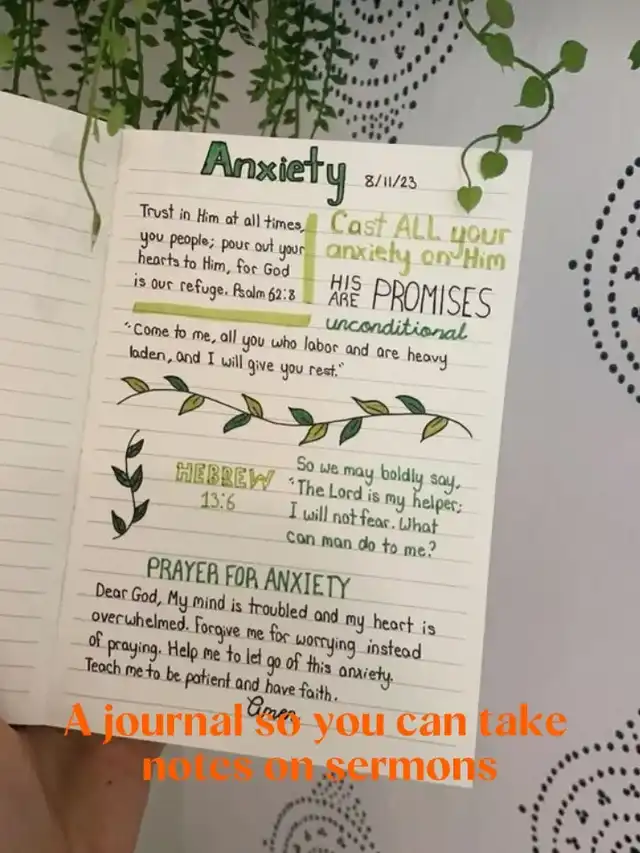 Anxiety 8/11/23
Trust in Him at all times,
you people; pour out your
hearts to Him, for God
is our refuge. Psalm 62:8
Cast ALL your
anxiety on Him
HIS
ARE PROMISES
unconditional
"Come to me, all you who labor and are heavy
laden, and I will give you rest."
HEBREW
13:6
So we may boldly say,
"The Lord is my helper;
I will not fear. What
can man do to me?
PRAYER FOR ANXIETY
Dear God, My mind is troubled and my heart is
overwhelmed. Forgive me for worrying instead
of praying. Help me to let go of this anxiety.
Teach me to be patient and have faith.
Amen
A journal so you can take
notes on sermons